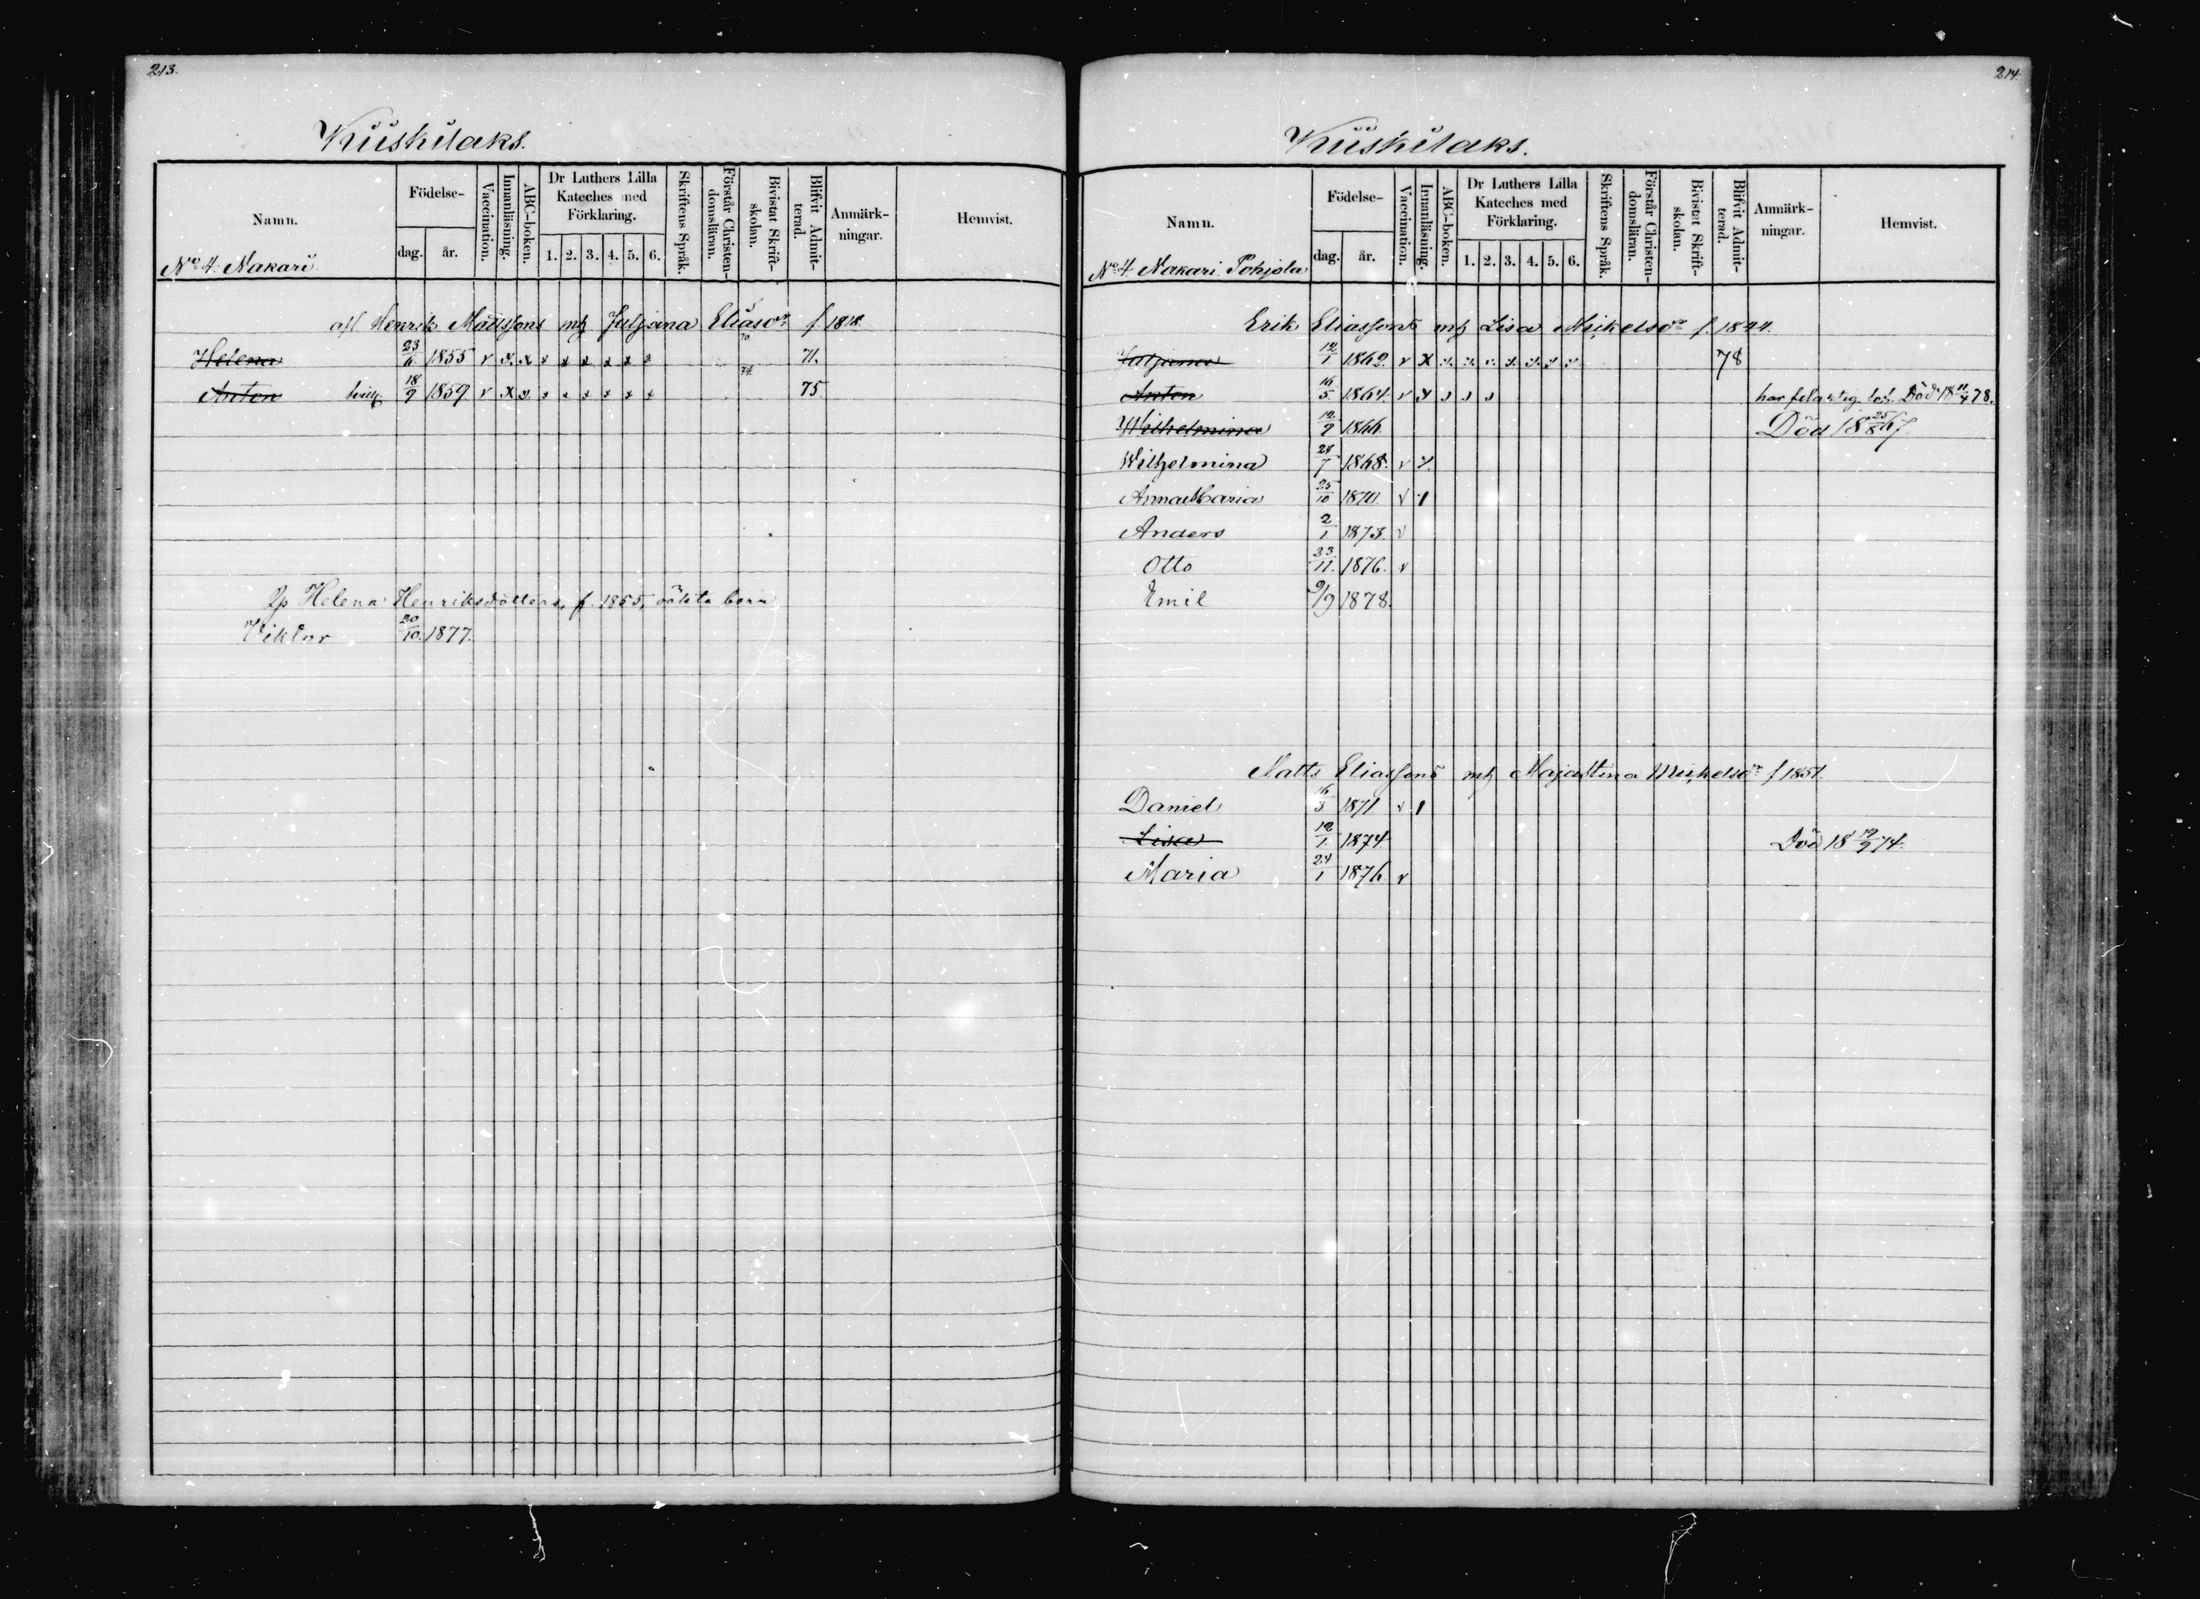 213.
Kuuskilaks.
Namn.
Födelse-
dag. år.
Vaccination.
Innanläsning.
ABC-boken.
Dr Luthers Lilla Kateches med Förklaring.
1. 2. 3. 4. 5. 6.
Skriftens Språk.
Förstår Christen-domsläran.
Bivistat Skrift-skolan.
Blifvit Admit-terad.
Anmärk-ningar.
Hemvist.
No 4. Nakari.
afl Henrik Mattssons mh Juljana Eliasdr f. 1818.
Helena 23/6 1855 v x x x x x x x x 70 71.
Anton 18/9 1859 v x x x x x x x x 74 75
Ip Helena Henriksdotters, f. 1855, oäkta barn
Viktor 20/10. 1877.
214.
Kuuskilaks.
Namn.
Födelse-
dag. år.
Vaccination.
Innanläsning.
ABC-boken.
Dr Luthers Lilla Kateches med Förklaring.
1. 2. 3. 4. 5. 6.
Skriftens Språk.
Förstår Christen-domsläran.
Bivistat Skrift-skolan.
Blifvit Admit-terad.
Anmärk-ningar.
Hemvist.
No 4 Nakari Pohjola
Erik Eliassons mh Lisa Mickelsdr f. 1844.
Juljana 12/1 1862. v x 78
Anton 16/5 1864. v x har felaktig Död 18 11/4 78.
Wilhelmina 12/9 1866 Död 18 25/8 67.
Wilhelmina 24/7 1868. v
Anna Maria 25/10 1870 v 1
Anders 2/1 1873. v
Otto 23/11. 1876. v
Emil 9/9 1878.
Matts Eliassons mh Maja Stina Mickelsdr f 1851.
Daniel 16/3 1871 v 1
Lisa 12/1 1874 Död 18 12/9 74.
Maria 24/1 1876 v